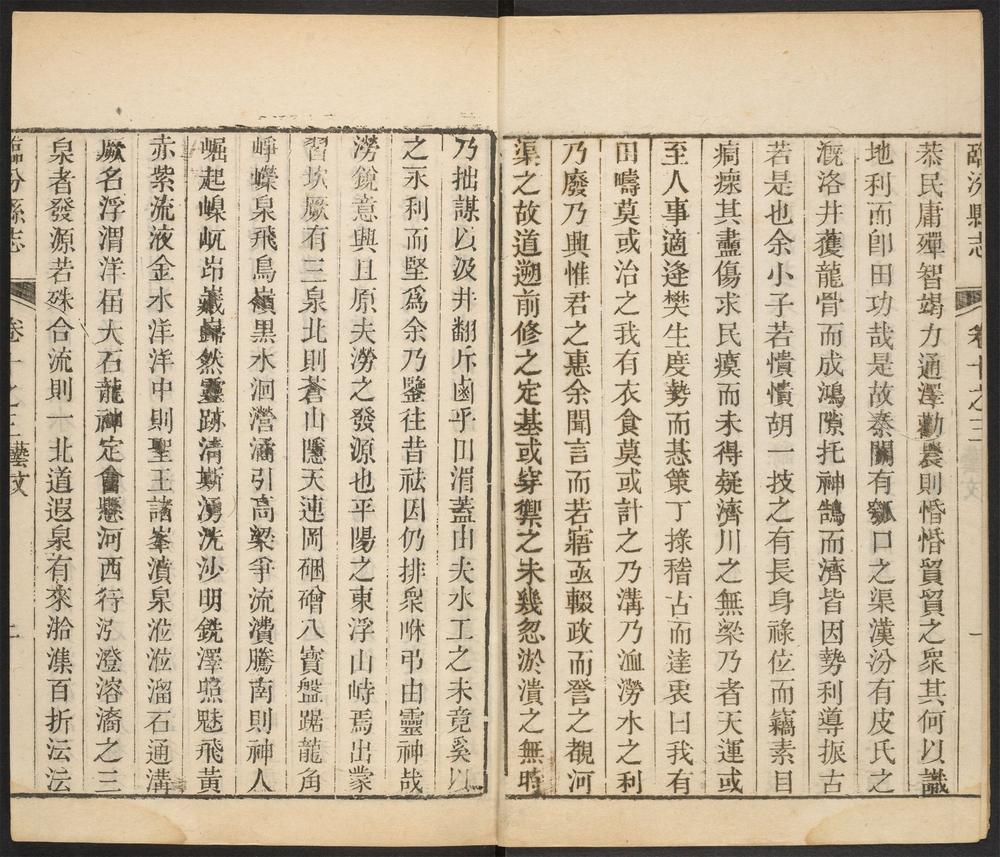 臨汾縣志
卷十之三
一
恭民庸殫智竭力通澤勸農則惛惛貿貿之衆其何以識
地利而卽田功哉是故秦關有瓠口之渠漢汾有皮氏之
溉洛井蒦龍骨而成鴻隙托神鵠而濟皆因勢利導振古
若是也余小子若憒憒胡一技之有長身祿位而竊素目
痌瘝其盡傷求民瘼而未得疑濟川之無梁乃者天運或
至人事適逢樊生度勢而惎策丁掾稽古而達衷曰我有
田疇莫或治之我有衣食莫或計之乃溝乃洫澇水之利
乃廢乃興惟君之惠余聞言而若寤亟輟政而謍之覩河
渠之故道遡前修之定基或穿禦之未幾忽淤潰之無時
乃拙謀以汲井翻斥鹵乎田湄蓋由夫水工之未竟奚以
之永利而堅爲余乃鑒往昔祛因仍排衆咻弔由靈神哉
澇銳意興且原夫澇之發源也平陽之東浮山峙焉出蒙
習坎厥有三泉北則蒼山隱天連岡硱磳八寶盤踞龍角
崢嶸泉飛鳥嶺黑水洄瀯涵引高梁爭流瀵騰南則神人
崛起嵲屼岝嶬巋然靈跡淸嘶湧洗沙明銑澤暿魅飛黃
赤紫流液金水洋洋中則聖王諸峯濆泉涖涖溜石通溝
厥名浮渭洋屆大石龍神定會懸河西行汈澄溶潏之三
泉者發源若殊合流則一北道遐泉有來湁潗百折沄沄
臨汾縣志
卷十之三藝文
二